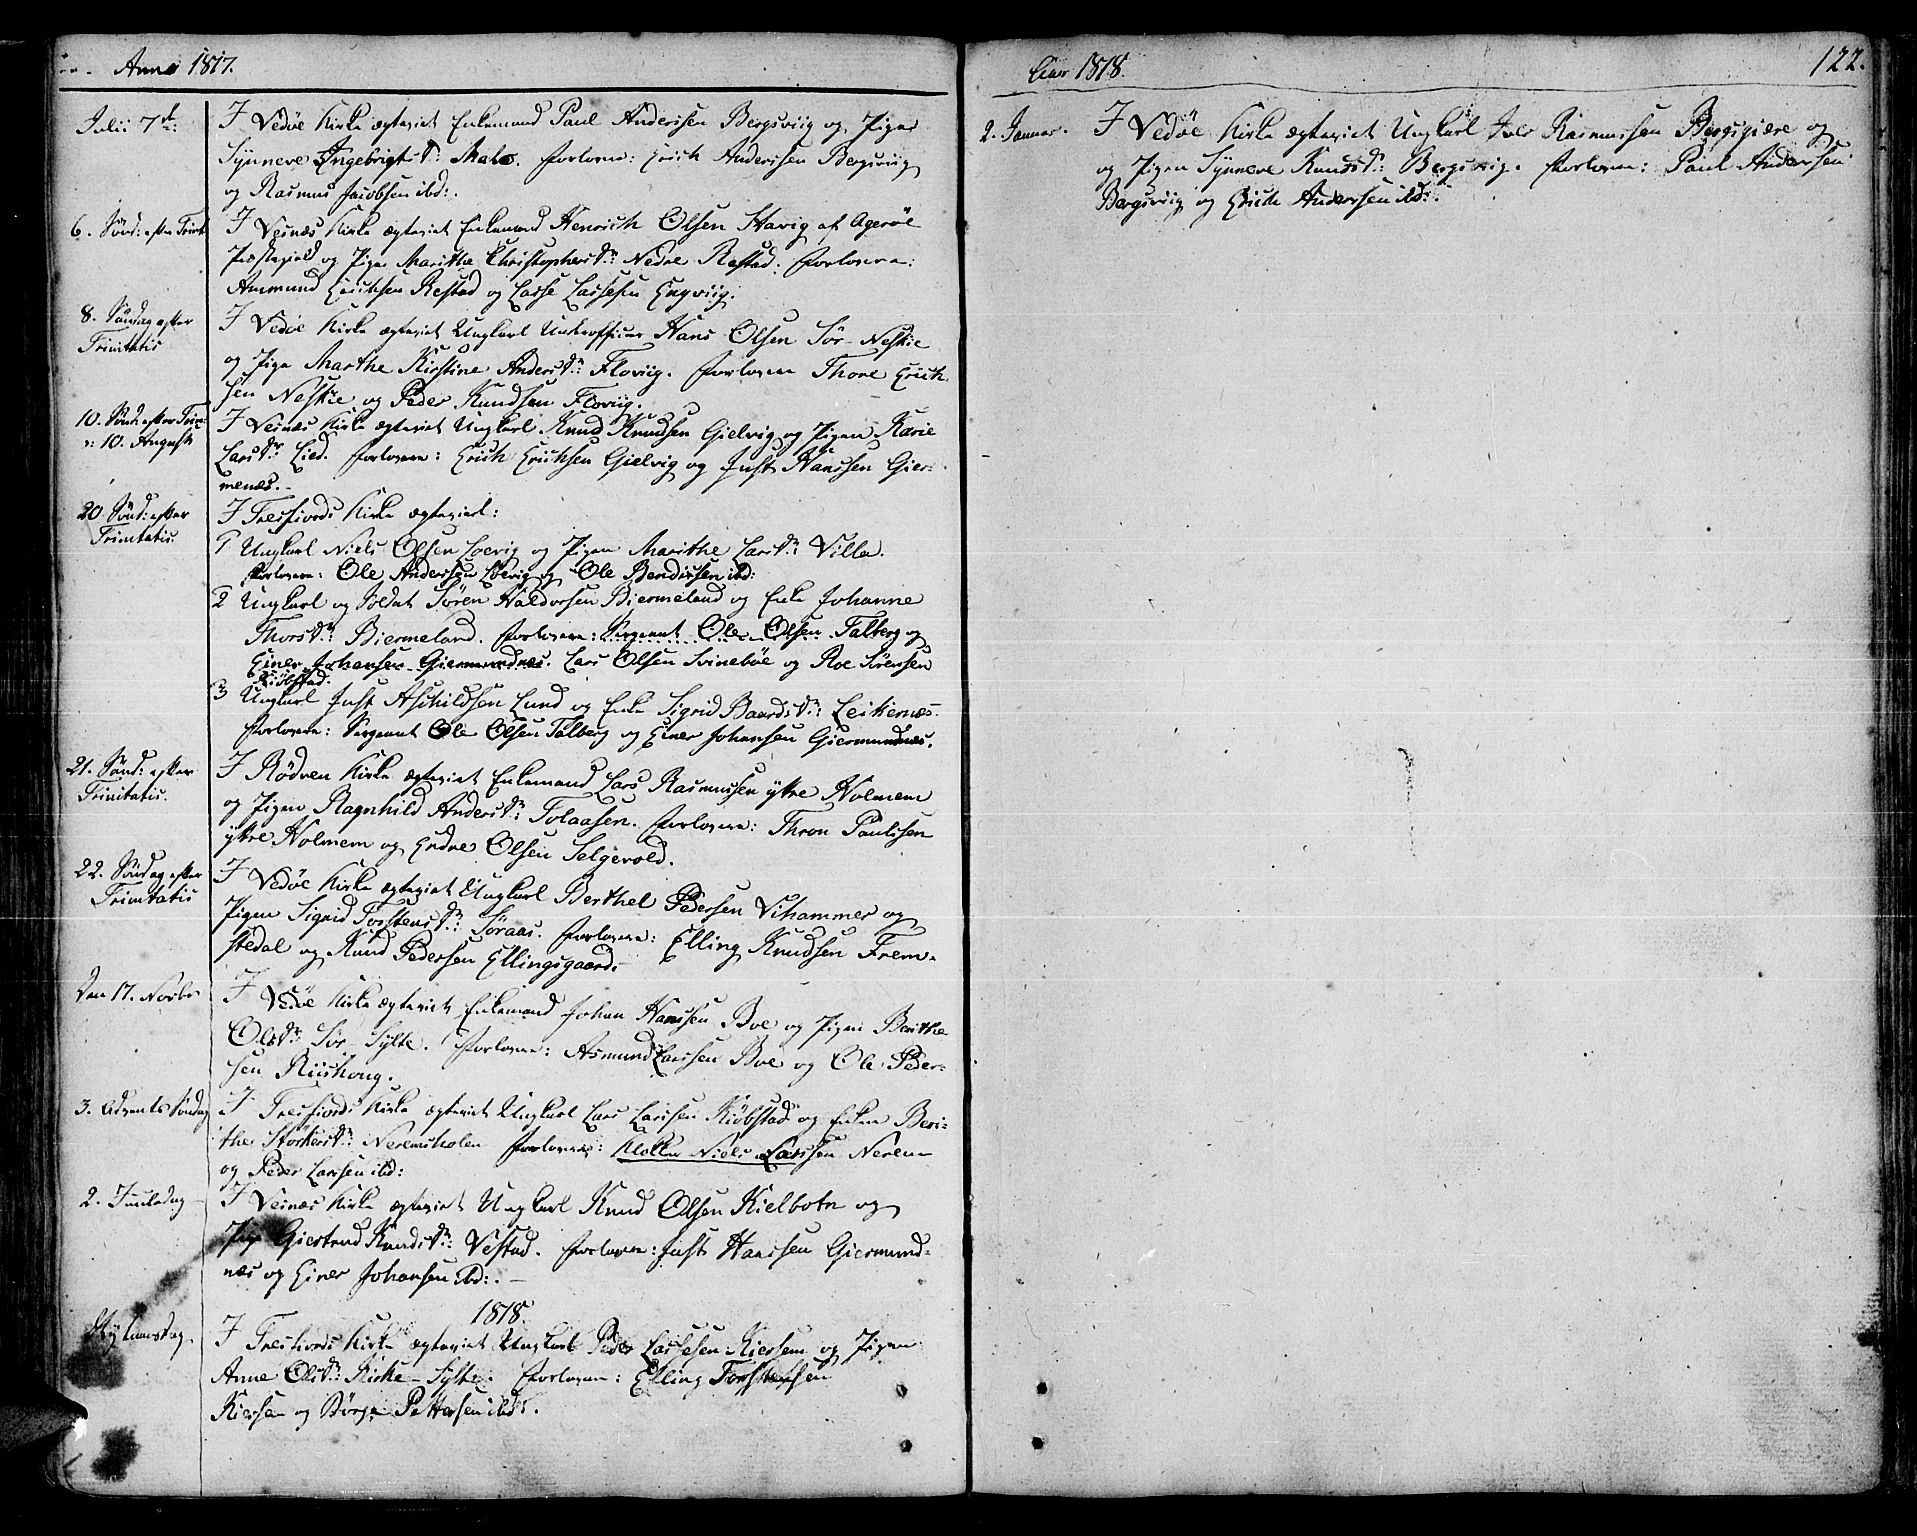 Anno 1817.
Julii 7de:
I Vedøe Kirke ægteviet Enkemand Paul Anderssen Bergsviig og Pigen
Synneve Ingebrigtsdr: Malo. Forlovere: Erich Anderssen Bergsviig
og Rasmus Jacobsen ibd:.
6. Sönd: efter Trinit
I Vesnæs Kirke ægteviet Enkemand Henrich Olsen Havig af Agerøe
Præstegield og Pigen Marithe Christophersdr: Nedre Restad. Forlovere:
Ammund Erichsen Restad og Lasse Lassesen Engviig.
8. Söndag efter
Trinitatis
I Vedøe Kirke ægteviet Ungkarl Underofficier Hans Olsen Sør-Neskie
og Pige Marthe Kirstine Andersdr: Floviig. Forlovere Thore Erich
sen Neskie og Peder Knudsen Floviig.
10. Sönd: efter Trin:
: 10. August
I Vesnæs Kirke ægteviet Ungkarl Knud Knudsen Gielvig og Pigen Karie
Larsdr: Lied. Forlovere: Erich Erichsen Gielvig og Just Hanssen Gier-
menæs.
20. Sönd: efter
Trinitatis.
I Tresfiords Kirke ægteviet:
1 Ungkarl Niels Olsen Loevig og Pigen Marithe Larsdr: Villa.
Forlovere: Ole Anderssen Loevig og Ole Bendixsen ibd:
2 Ungkarl og Soldat Sören Haldorsen Biermeland og Enke Johanne
Thorsdr: Biermeland. Forlovere: Sergeant Ole Olsen Talberg og
Einer Johansen Giermundnæs. Lars Olsen Svinebøe og Roe Sörenssen
Kiöbstad.
3 Ungkarl Just Aschildsen Lund og Enke Sigrid Baardsdr: Leikernæs.
Forlovere: Sergeant Ole Olsen Talberg og Einer Johansen Giermundnæs.
21. Sönd: efter
Trinitatis.
I Rødven Kirke ægteviet Enkemand Lars Rasmussen ytre Holmem
og Pigen Ragnhild Andersdr: Tolaasen. Forlovere: Thron Paulssen
ytre Holmem og Endre Olsen Selgevold.
22. Söndag efter
Trinitatis
I Vedøe Kirke ægteviet Ungkarl Berthel Pedersen Vihammer og
Pigen Sigrid Torstensdr: Søraas. Forlovere: Elling Knudsen Frem-
stedal og Knud Pedersen Ellingsgaard.
Den 17. Novbr
I Vedøe Kirke ægteviet Enkemand Johan Hanssen Boe og Pigen Berithe
Olsdr Sør-Sylte. Forlovere: Asmund Larssen Boe og Ole Peder-
sen Riishoug.
3. Advents Söndag
I Tresfiords Kirke ægteviet Ungkarl Lars Larssen Kiöbstad og Enken Beri-
the Storkersdr: Neremsholen Forlovere: Niels Larssen Nerem
og Peder Larssen ibd:
2. Juuledag
I Vesnæs Kirke ægteviet Ungkarl Knud Olsen Kielbotn og
Pige Giertrud Knudsdr: Vestad. Forlovere: Just Hanssen Giermund-
næs og Einer Johansen ibd:.
1818.
Nytaarsdag.
I Tresfiords Kirke ægteviet Ungkarl Peder Lassesen Kiersem og Pigen
Anne Olsdr: Kirke-Sylte. Forlovere: Elling Torstensen
Kiersem og Børge Pettersen ibd:.
Aar 1818.
122.
2. Januar.
I Vedøe Kirke ægteviet Ungkarl Iver Rasmussen Bergsgiære og
og Pigen Synneve Knudsdr: Bergsvig. Forlovere: Paul Anderssen
Bergsviig og Erich Anderssen ibd:.